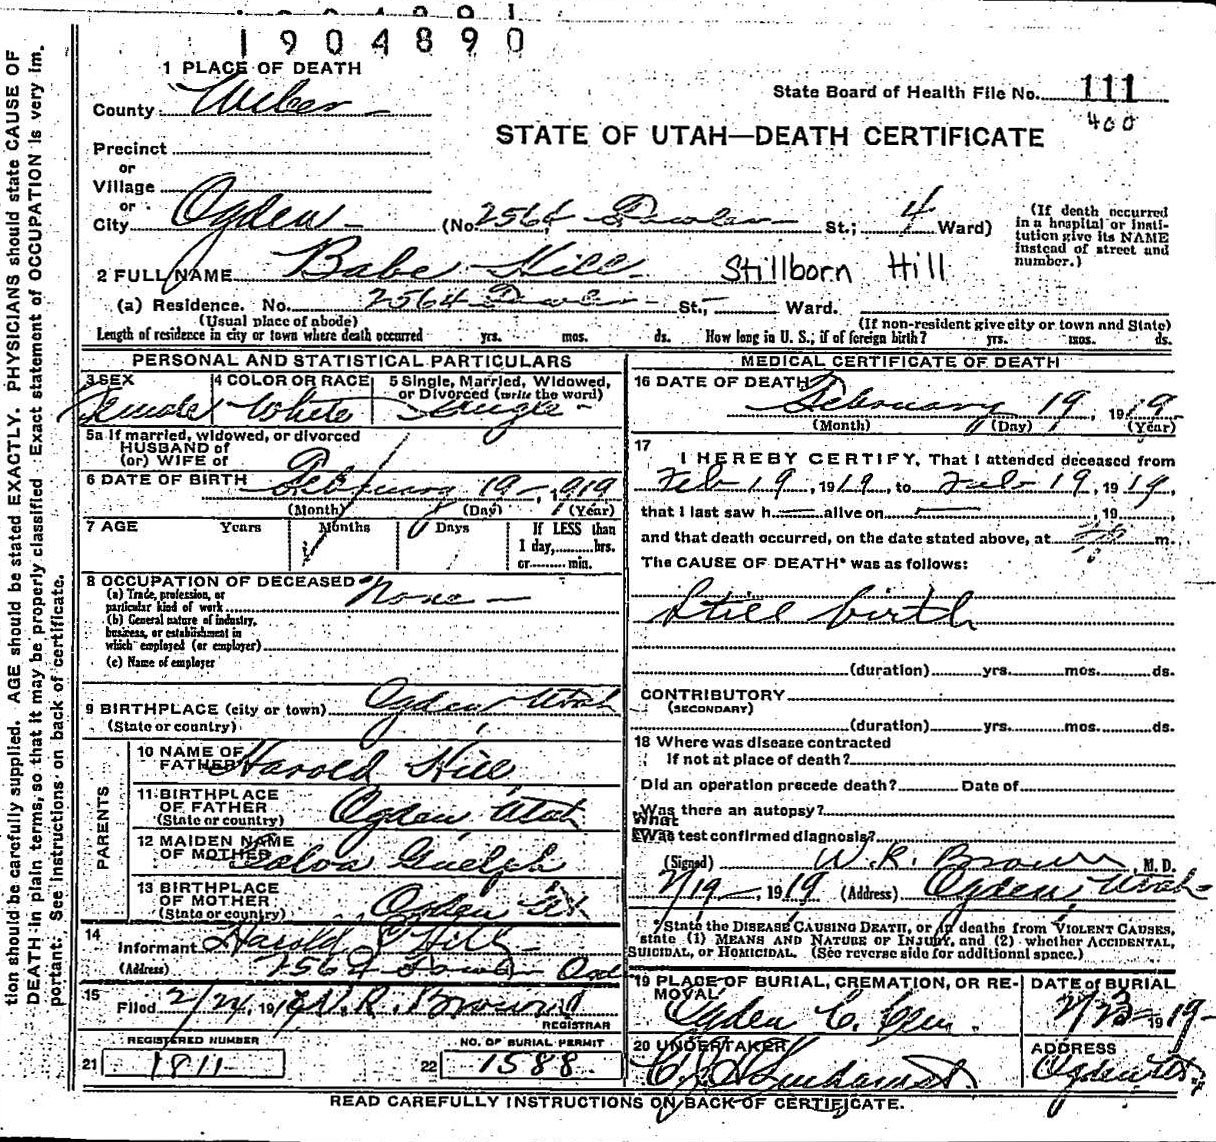 1904890
1 PLACE OF DEATH
County Weber
State Board of Health File No. 111
400
STATE OF UTAH—DEATH CERTIFICATE
Precinct
or
Village
or
City Ogden (No. 2564 St.; 4 Ward)
(If death occurred in a hospital or institution give its NAME instead of street and number.)
2 FULL NAME Babe Hill Stillborn Hill
(a) Residence. No. 2564 St., Ward.
(Usual place of abode) (If non-resident give city or town and State)
Length of residence in city or town where death occurred yrs. mos. ds. How long in U. S., if of foreign birth? yrs. mos. ds.
PERSONAL AND STATISTICAL PARTICULARS
3 SEX 4 COLOR OR RACE 5 Single, Married, Widowed, or Divorced (write the word)
Female White Single
5a If married, widowed, or divorced
HUSBAND of
(or) WIFE of
6 DATE OF BIRTH February 19, 1919
(Month) (Day) (Year)
7 AGE Years Months Days If LESS than
1 day, hrs.
or min.
8 OCCUPATION OF DECEASED None
(a) Trade, profession, or
particular kind of work
(b) General nature of industry,
business, or establishment in
which employed (or employer)
(c) Name of employer
9 BIRTHPLACE (city or town) Ogden Utah
(State or country)
PARENTS
10 NAME OF
FATHER Harold Hill
11 BIRTHPLACE
OF FATHER
(State or country) Ogden Utah
12 MAIDEN NAME
OF MOTHER
13 BIRTHPLACE
OF MOTHER
(State or country) Ogden Ut
14
Informant Harold Hill
(Address) 2564
15
Filed 2/24, 191 W. R. Brown
REGISTRAR
REGISTERED NUMBER NO. OF BURIAL PERMIT
21 1811 22 1588
MEDICAL CERTIFICATE OF DEATH
16 DATE OF DEATH
February 19, 1919
(Month) (Day) (Year)
17
I HEREBY CERTIFY, That I attended deceased from
Feb 19, 1919, to Feb 19, 1919,
that I last saw h alive on , 19
and that death occurred, on the date stated above, at m.
The CAUSE OF DEATH* was as follows:
Still birth
(duration) yrs. mos. ds.
CONTRIBUTORY
(SECONDARY)
(duration) yrs. mos. ds.
18 Where was disease contracted
If not at place of death?
Did an operation precede death? Date of
Was there an autopsy?
What
Was test confirmed diagnosis?
(Signed) W. R. Brown, M. D.
2/19, 1919 (Address) Ogden Utah
*State the DISEASE CAUSING DEATH, or in deaths from VIOLENT CAUSES,
state (1) MEANS AND NATURE OF INJURY, and (2) whether ACCIDENTAL,
SUICIDAL, or HOMICIDAL. (See reverse side for additional space.)
19 PLACE OF BURIAL, CREMATION, OR REMOVAL DATE of BURIAL
Ogden C. Cem. 2/23 1919
20 UNDERTAKER ADDRESS
Ogden Utah
READ CAREFULLY INSTRUCTIONS ON BACK OF CERTIFICATE.
tion should be carefully supplied. AGE should be stated EXACTLY. PHYSICIANS should state CAUSE OF
DEATH in plain terms, so that it may be properly classified. Exact statement of OCCUPATION is very im.
portant. See instructions on back of certificate.